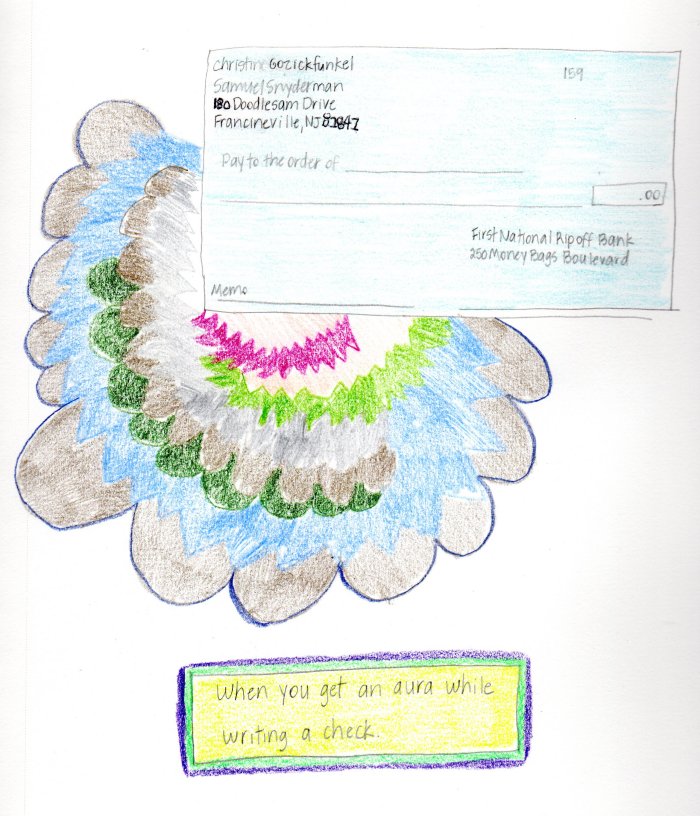 Christine Gozickfunkel
159
Samuel Snyderman
180 Doodlesam Drive
Francineville, NJ
Pay to the order of
.00
First National Ripoff Bank
250 Money Bags Boulevard
Memo
When you get an aura while
writing a check.